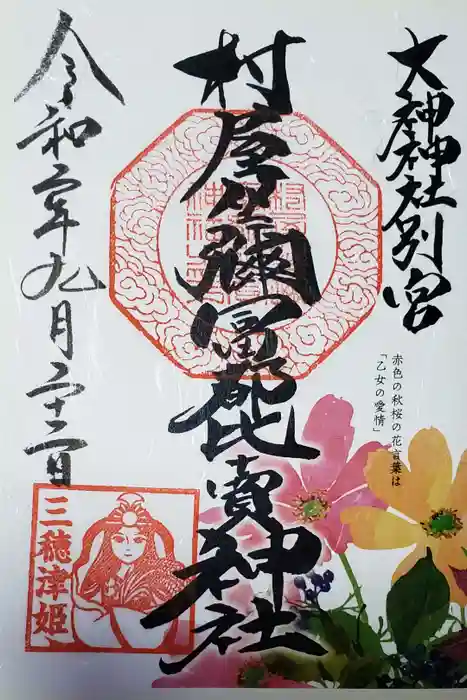 大神神社別宮
村屋坐彌冨都比賣神社
令和二年九月二十二日
赤色の秋桜の花言葉は
「乙女の愛情」
三穂津姫